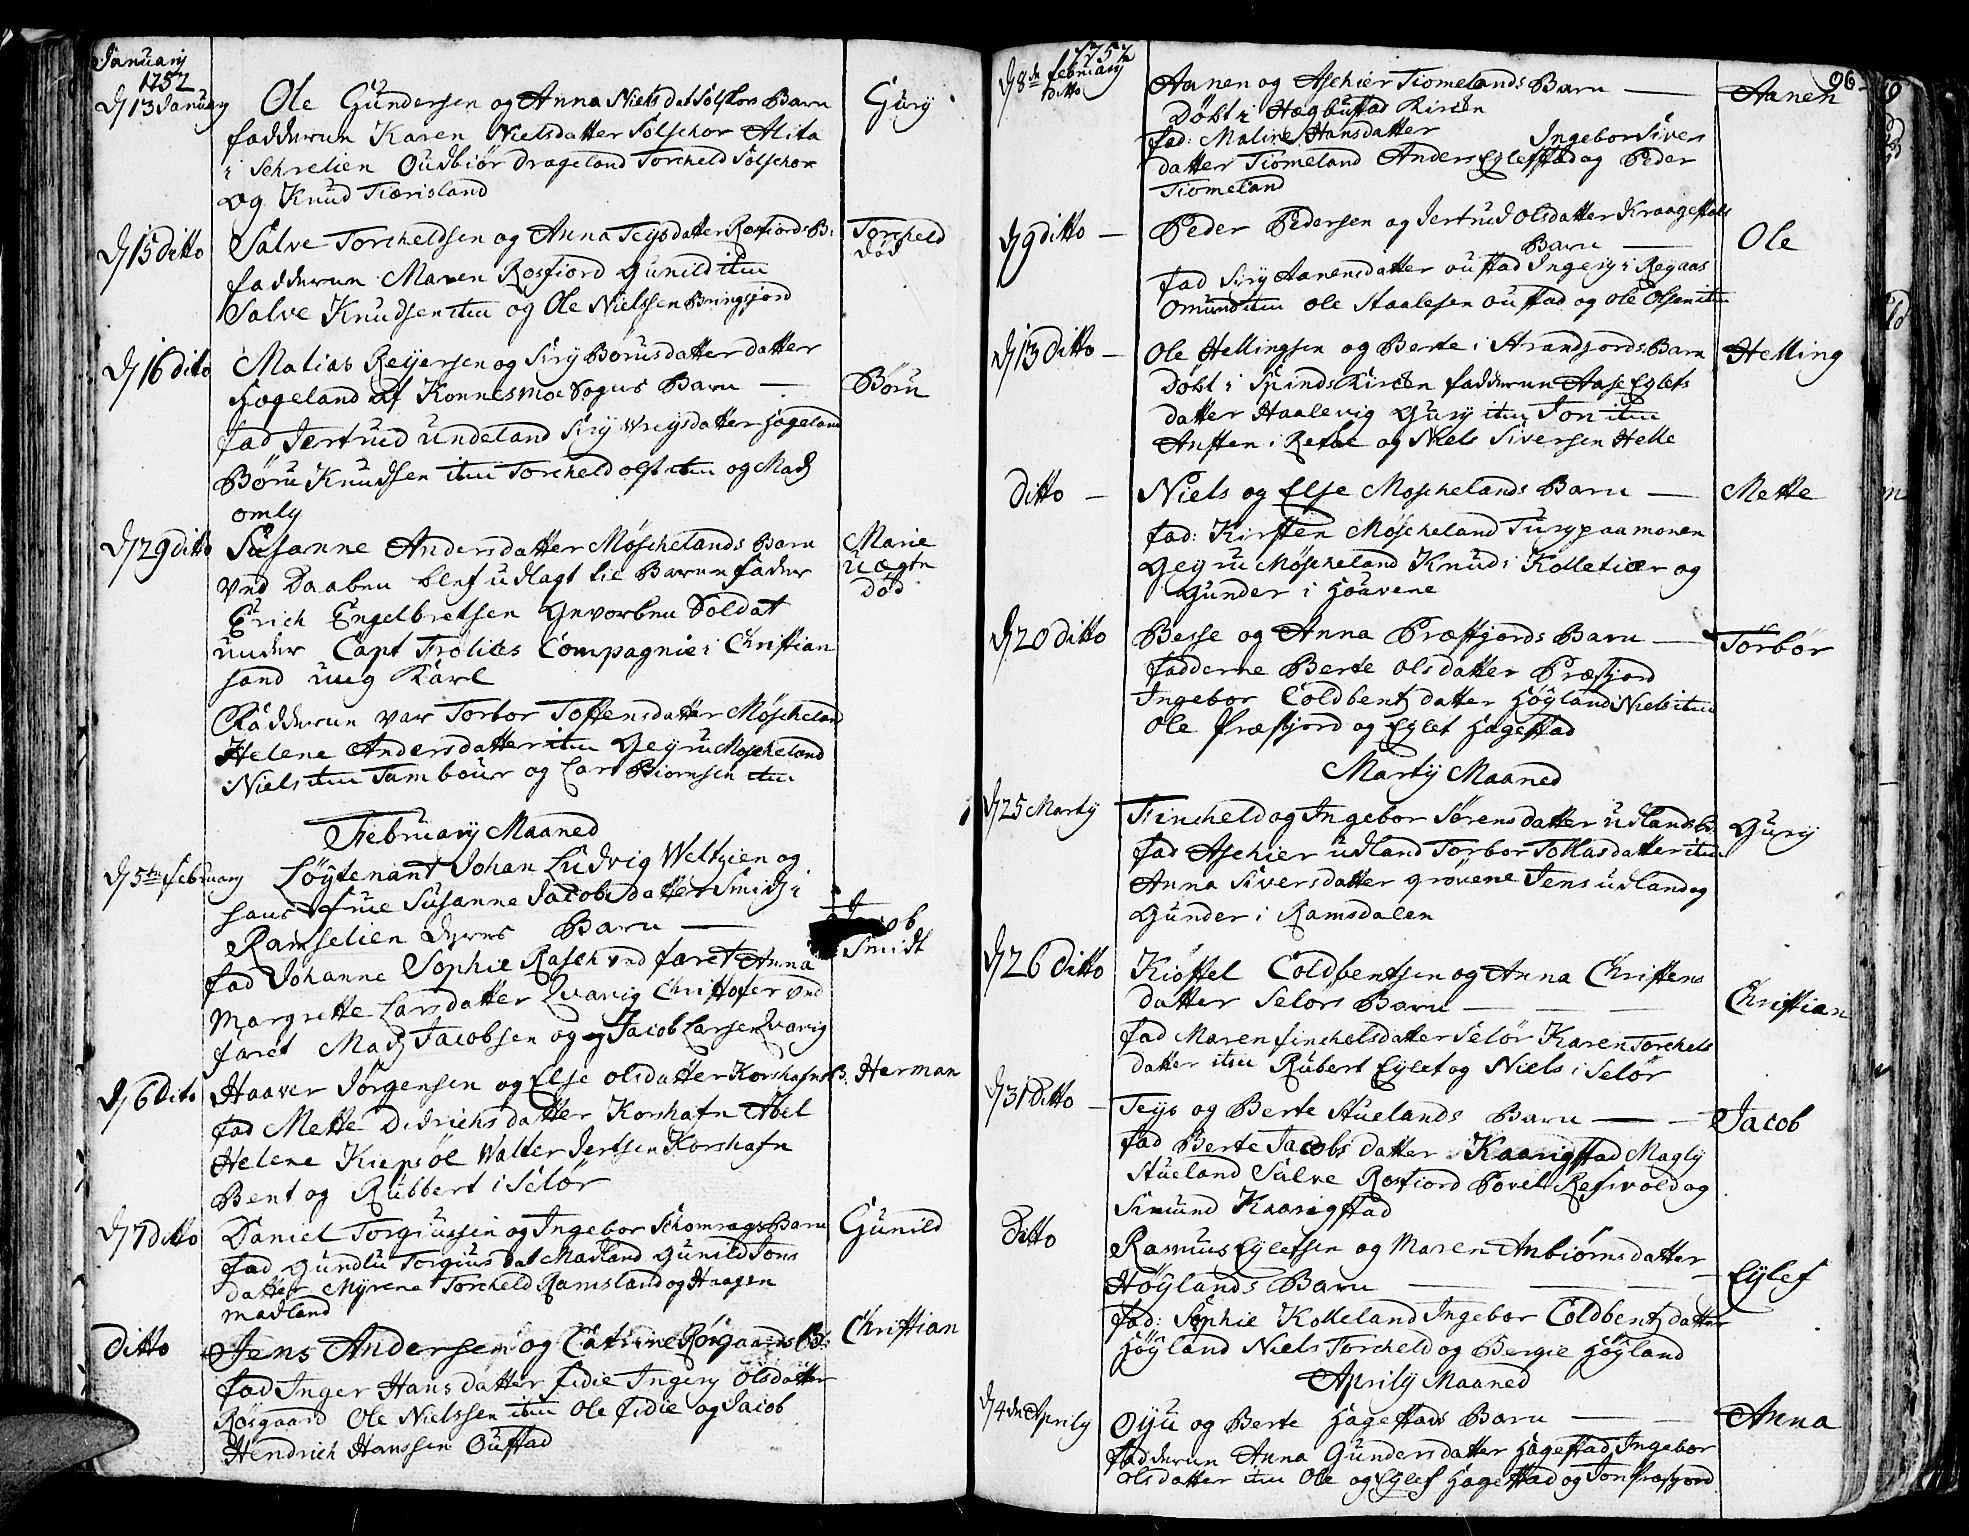 January
1752
D 13 January
Ole Gundersen og Anna Niels dat Solskor Barn
Gury
fadderne Karen Nielsdatter Solschor Alita
i Schrelien Oudbiør Drageland Torcheld Solschor
og Knud Tiærisland
D 15 ditto
Salve Torcheldsen og Anna Teysdatter Rosfiords B:
Torcheld
død
fadderne Maren Rosfiord Gunild item
Salve Knudsen item og Ole Nielssen Bringsjord
D 16 dito
Matias Reyersen og Siry Børusdatter datter
Hogeland af Konnesmoe Sogns Barn —
Børu
fad Jertrud undeland Siry Wreysdatter Høgeland
Børu Knudsen item Torcheld ols item og Mads
omly
D 29 ditto
Susanne Andersdatter Møschelands Barn
Marie
Uægte
død
ved Daaben blef udlagt til Barne fader
Erich Engelbretsen Gevorben Soldat
under Capt Frolics Compagnie i Christian
sand ung Karl
Fadderne var Torbor Toffensdatter Møscheland
Helene Andersdatter item Geyru Moscheland
Niels item Tambour og Lars Biornsen item
February Maaned
D 5te February
Løytenant Johan Ludvig Weltzien og
hans Frue Susanne Jacobsdatter Smidz i
Jacob
Smidt
Ramselien deres Barn —
fad Johanne Sophie Rasch ved faret Anna
Margrette Larsdatter Qvavig Christofer ved
faret Mads Jacobsen og Jacob Larsen Qvavig
D 6 Dito
Haaver Jørgensen og Else olsdatter Korshafns B:
Herman
fad Mette Didrichsdatter Korshafn Abel
Helene Kiepsøl Walter Jertsen Korshafn
Bent og Rubbert i Selør
D 7 Ditto
Daniel Torgiussen og Ingebor Schomrags Barn
Gunild
fad Gundlu Torgius dat Madland Gunild Jons
datter Myrene Torcheld Ramsland og Haagen
madland
ditto
Jens Andersen og Catrine Røsgaards B:
Christian
fad Inger Hans datter fidie Ingery olsdatter
Røsgaard Ole Nielssen item Ole fidie og Jacob
Hendrich Hanssen Oufstad
1752
96
D 8de February
ditto
Aanen og Aschier Tiomelands Barn —
Aanen
Døbt i Hægbustad Kirken
fad: Maline Hansdatter Ingebor Sivers
datter Tiomeland Anders Eglefstad og Peder
Tiomeland
D 9 ditto —
Peder Pedersen og Jertrud olsdatter Kraagestads
Barn —
Ole
fad Siry Aanensdatter oufstad Ingery i Regaas
Omund item Ole Staalesen oufstad og Ole Olsen item
D 13 Ditto —
Ole Hellingsen og Berte i Strandjords Barn
Helling
Døbt i Spinds Kirken fadderne Aase Eglefs
datter Haalevig Gury item Jon item
Ansten i Refsøe og Niels Siversen Helle
ditto —
Niels og Else Moschelands Barn —
Mette
fad: Kirsten Møscheland Tury paa monen
Geyru Møscheland Knud i Kolletiær og
Gunder i Høavene
D 20 Ditto
Besse og Anna Præstjords Barn —
Torbør
fadderne Berte olsdatter Præstjord
Ingebor Coldbentzdatter Høyland Niels item
Ole Præstjord og Eylef Hagestad
Marty Maaned
D 25 Marty
Fincheld og Ingebor Sørensdatter udlands B:
Gury
fad Aschier udland Torbor Tollasdatter item
Anna Siversdatter Grovene Jens udland og
Gunder i Ramsdalen
D 26 Ditto
Kiøstel Coldbentsen og Anna Christens
datter Selørs Barn — — —
Christian
fad Maren finchelsdatter Selør Karen Torchels
datter item Rubert Eylet og Niels i Selør
D 31 Ditto —
Teys og Berte Stuelands Barn — —
Jacob
fad Berte Jacobs datter Kaarigstad Magly
Stueland Salve Rosfiord Povel Refsvold og
Simund Kaarigstad
Ditto
Rasmus Eylefsen og Maren Anbiørnsdatter
Høylands Barn — — —
Eylef
fad: Sophie Kolleland Ingebor Coldbentz datter
Høyland Niels Torcheld og Bergie Høyland
Aprily Maaned
D 4de Aprily
Oyu og Berte Hagestads Barn — —
Anna
fadderne Anna Gundersdatter Hagestad Ingebor
olsdatter item Ole og Eylef Hagestad og Jon Præstjord